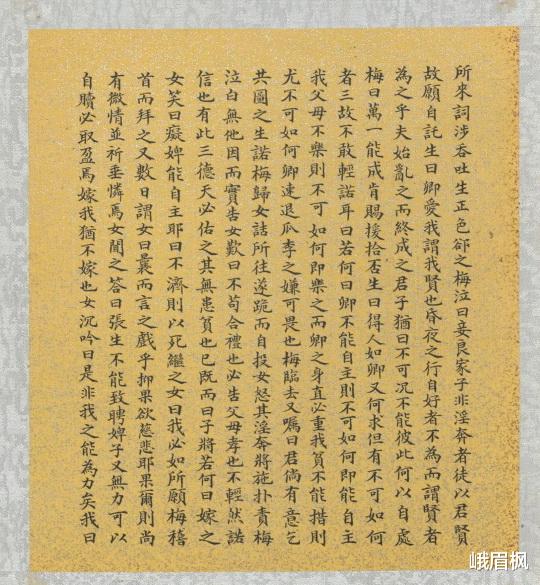 所來詞涉吞吐生正色卻之梅泣曰妾良家子非淫奔者徒以君賢
故願自託生曰卿愛我謂我賢也昏夜之行自好者不為而謂賢者
為之乎夫始亂之而終成之君子猶曰不可況不能彼此何以自處
梅曰萬一能成肯賜援拾否生曰得人如卿又何求但有不可如何
者三故不敢輕諾耳曰若何曰卿不能自主則不可如何即能自主
我父母不樂則不可如何即樂之而卿之身直必重我貧不能措則
尤不可如何卿速退瓜李之嫌可畏也梅臨去又囑曰君倘有意乞
共圖之生諾梅歸女詰所往遂跪而自投女怒其淫奔將施扑責梅
泣白無他因而實告女歎曰不苟合禮也必告父母孝也不輕然諾
信也有此三德天必佑之其無患貧也已既而曰子將若何曰嫁之
女笑曰癡婢能自主耶曰不濟則以死繼之女曰我必如所願梅稽
首而拜之又數日謂女曰曩而言之戲乎抑果欲慈悲耶果爾則尚
有微情並祈垂憐焉女問之答曰張生不能致聘婢子又無力可以
自贖必取盈焉嫁我猶不嫁也女沉吟曰是非我之能為力矣我曰
峨眉枫